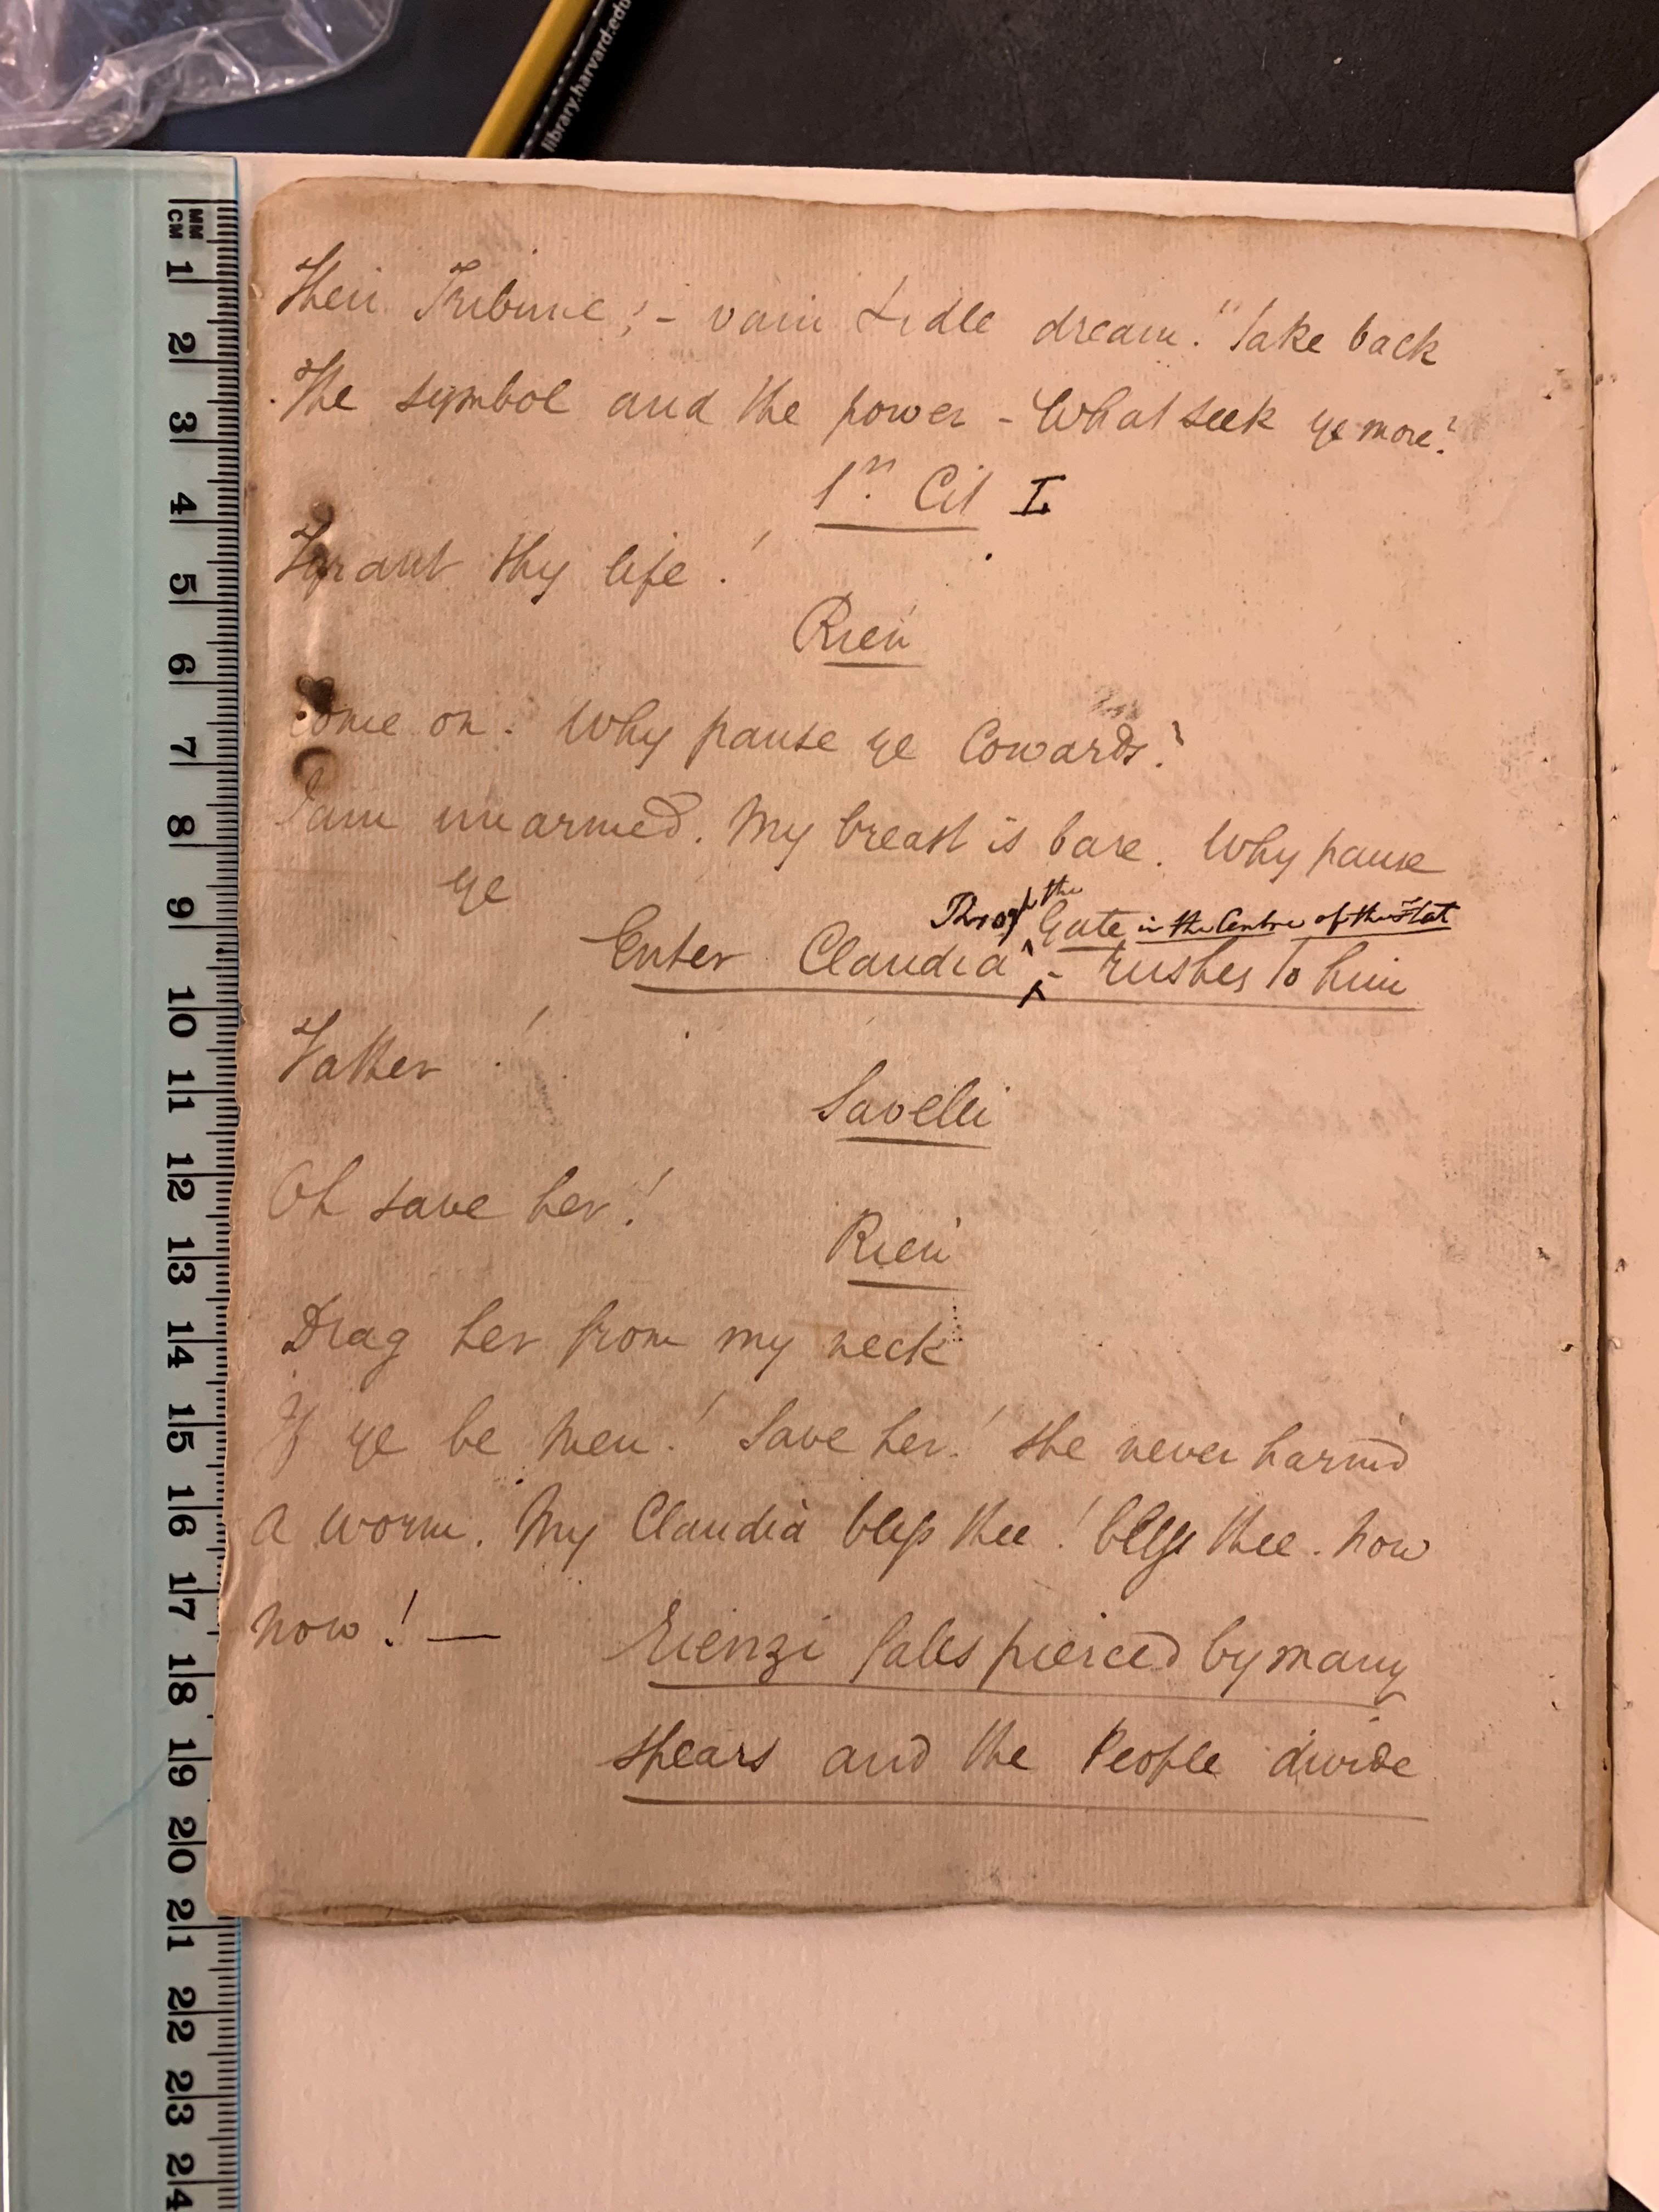 library.harvard.edu
MM
CM
1 2 3 4 5 6 7 8 9 10 11 12 13 14 15 16 17 18 19 20 21 22 23 24
Their Tribune; - vain & idle dream! Take back
The symbol and the power - What seek ye more?
1st. Cit I.
Tyrant thy life!
Rien
Come on. Why pause ye Cowards?
I am unarmed. My breast is bare. Why pause
ye
Throgh the Gate in the Centre of the Flat
Enter Claudia - rushes to him
Father!
Savelli
Oh save her!
Rien
Drag her from my neck
If ye be Men! Save her! She never harm'd
A worm. My Claudia bless thee! bless thee. now
now! —
Rienzi falls pierced by many
spears and the People divide